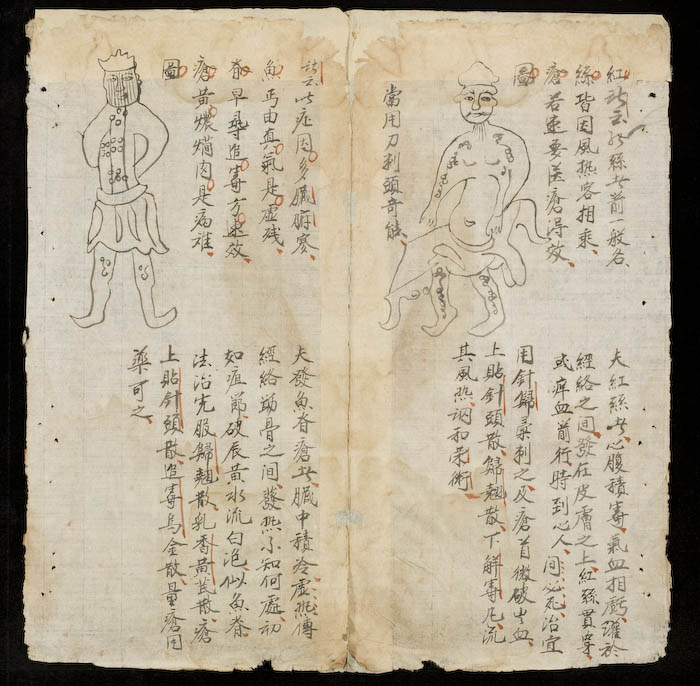 紅詩云此絲共前一般名
絲皆因風热客相乘
瘡若速要医瘡得效
圖
當用刀刺頭奇能
夫紅絲者心腹積毒氣血相虧躍於
經絡之間發在皮膚之上紅絲貫穿
或痒血前行時到心人间必死治宜
用針歸刺之及瘡首微破出血
上貼針頭散歸翹散下解毒流
其風热调和術
詩云此症因多臟腑寒
魚丐由真氣是虚残
脊早尋追毒方速效
瘡黄膿爛肉是病難
圖
夫發魚脊瘡者臟中積冷虚热傳
經絡筋骨之间發热不知何處初
如疽節破辰黄水流白泡似魚脊
法治先服歸翹散乳香黄芪散瘡
上貼針頭散追毒烏金散量瘡用
藥可之